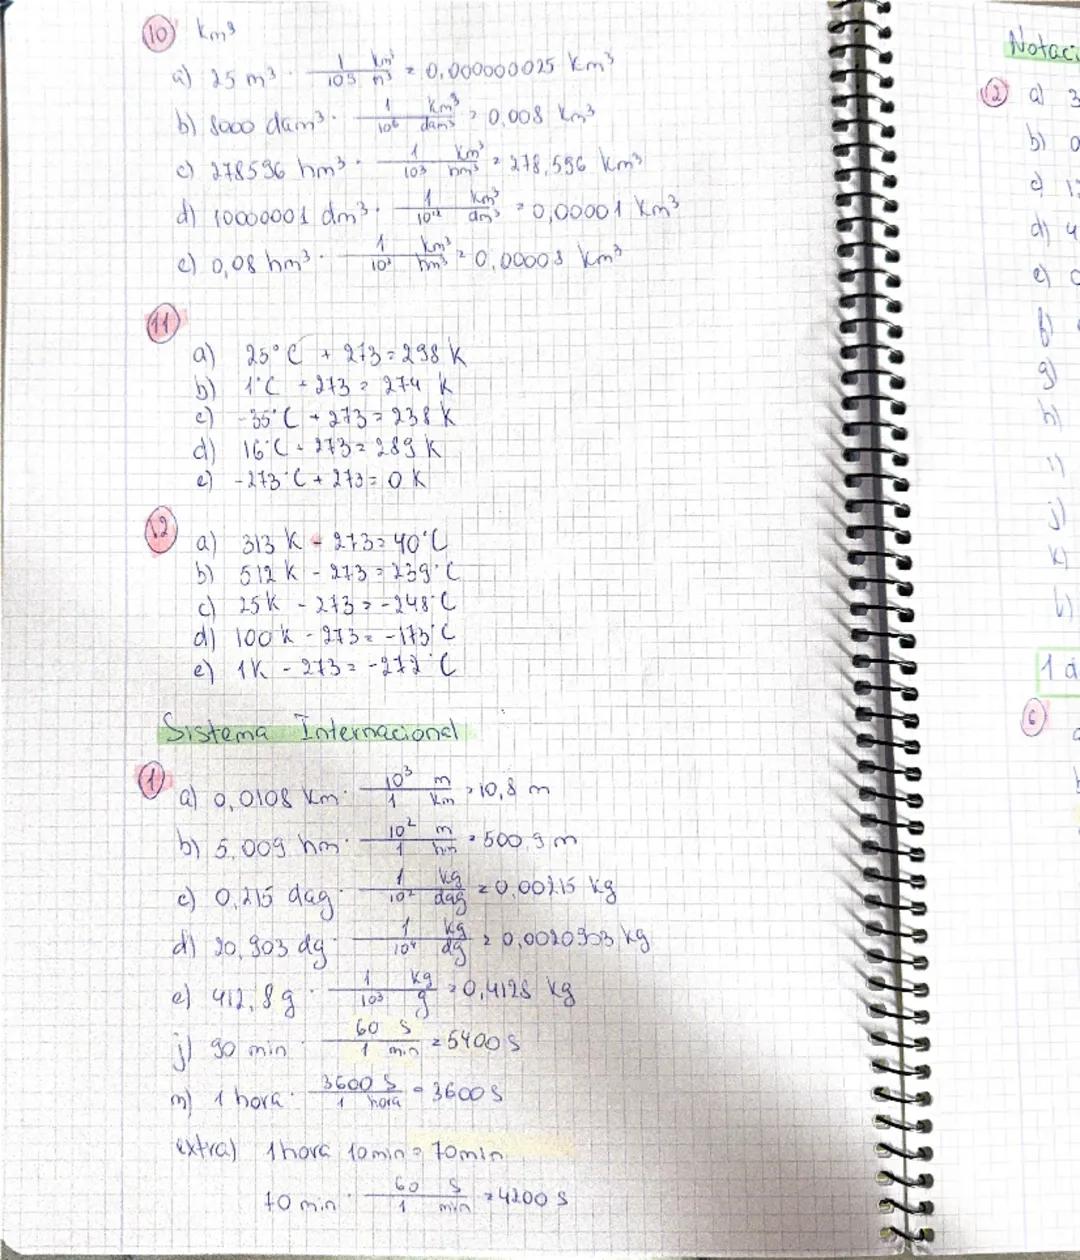 10 km³
a) 25 m³ · 1/10⁹ km³/m³ = 0,000000025 km³
b) 8000 dam³ · 1/10⁶ km³/dam³ = 0,008 km³
c) 278596 hm³ · 1/10³ km³/hm³ = 278,596 km³
d) 10000001 dm³ · 1/10¹² km³/dm³ = 0,00001 km³
e) 0,08 hm³ · 1/10³ km³/hm³ = 0,00008 km³
11
a) 25°C + 273 = 298 K
b) 1°C + 273 = 274 K
c) -35°C + 273 = 238 K
d) 16°C + 273 = 289 K
e) -273°C + 273 = 0 K
12
a) 313 K - 273 = 40°C
b) 512 K - 273 = 239°C
c) 25 K - 273 = -248°C
d) 100 K - 273 = -173°C
e) 1K - 273 = -272°C
Sistema Internacional
1
a) 0,0108 Km · 10³/1 m/Km = 10,8 m
b) 5,009 hm · 10²/1 m/hm = 500,9 m
c) 0,215 dag · 1/10² kg/dag = 0,00215 kg
d) 20,903 dg · 1/10⁴ kg/dg = 0,0020903 kg
e) 412,8 g · 1/10³ kg/g = 0,4128 kg
j) 90 min · 60 s/1 min = 5400 s
m) 1 hora · 3600 s/1 hora = 3600 s
extra) 1 hora 10 min = 70 min
70 min · 60/1 s/min = 4200 s
Notaci
12 a) 3
b) 0
c)
d) 4
e)
f)
g)
h)
i)
j)
k)
1 d
6